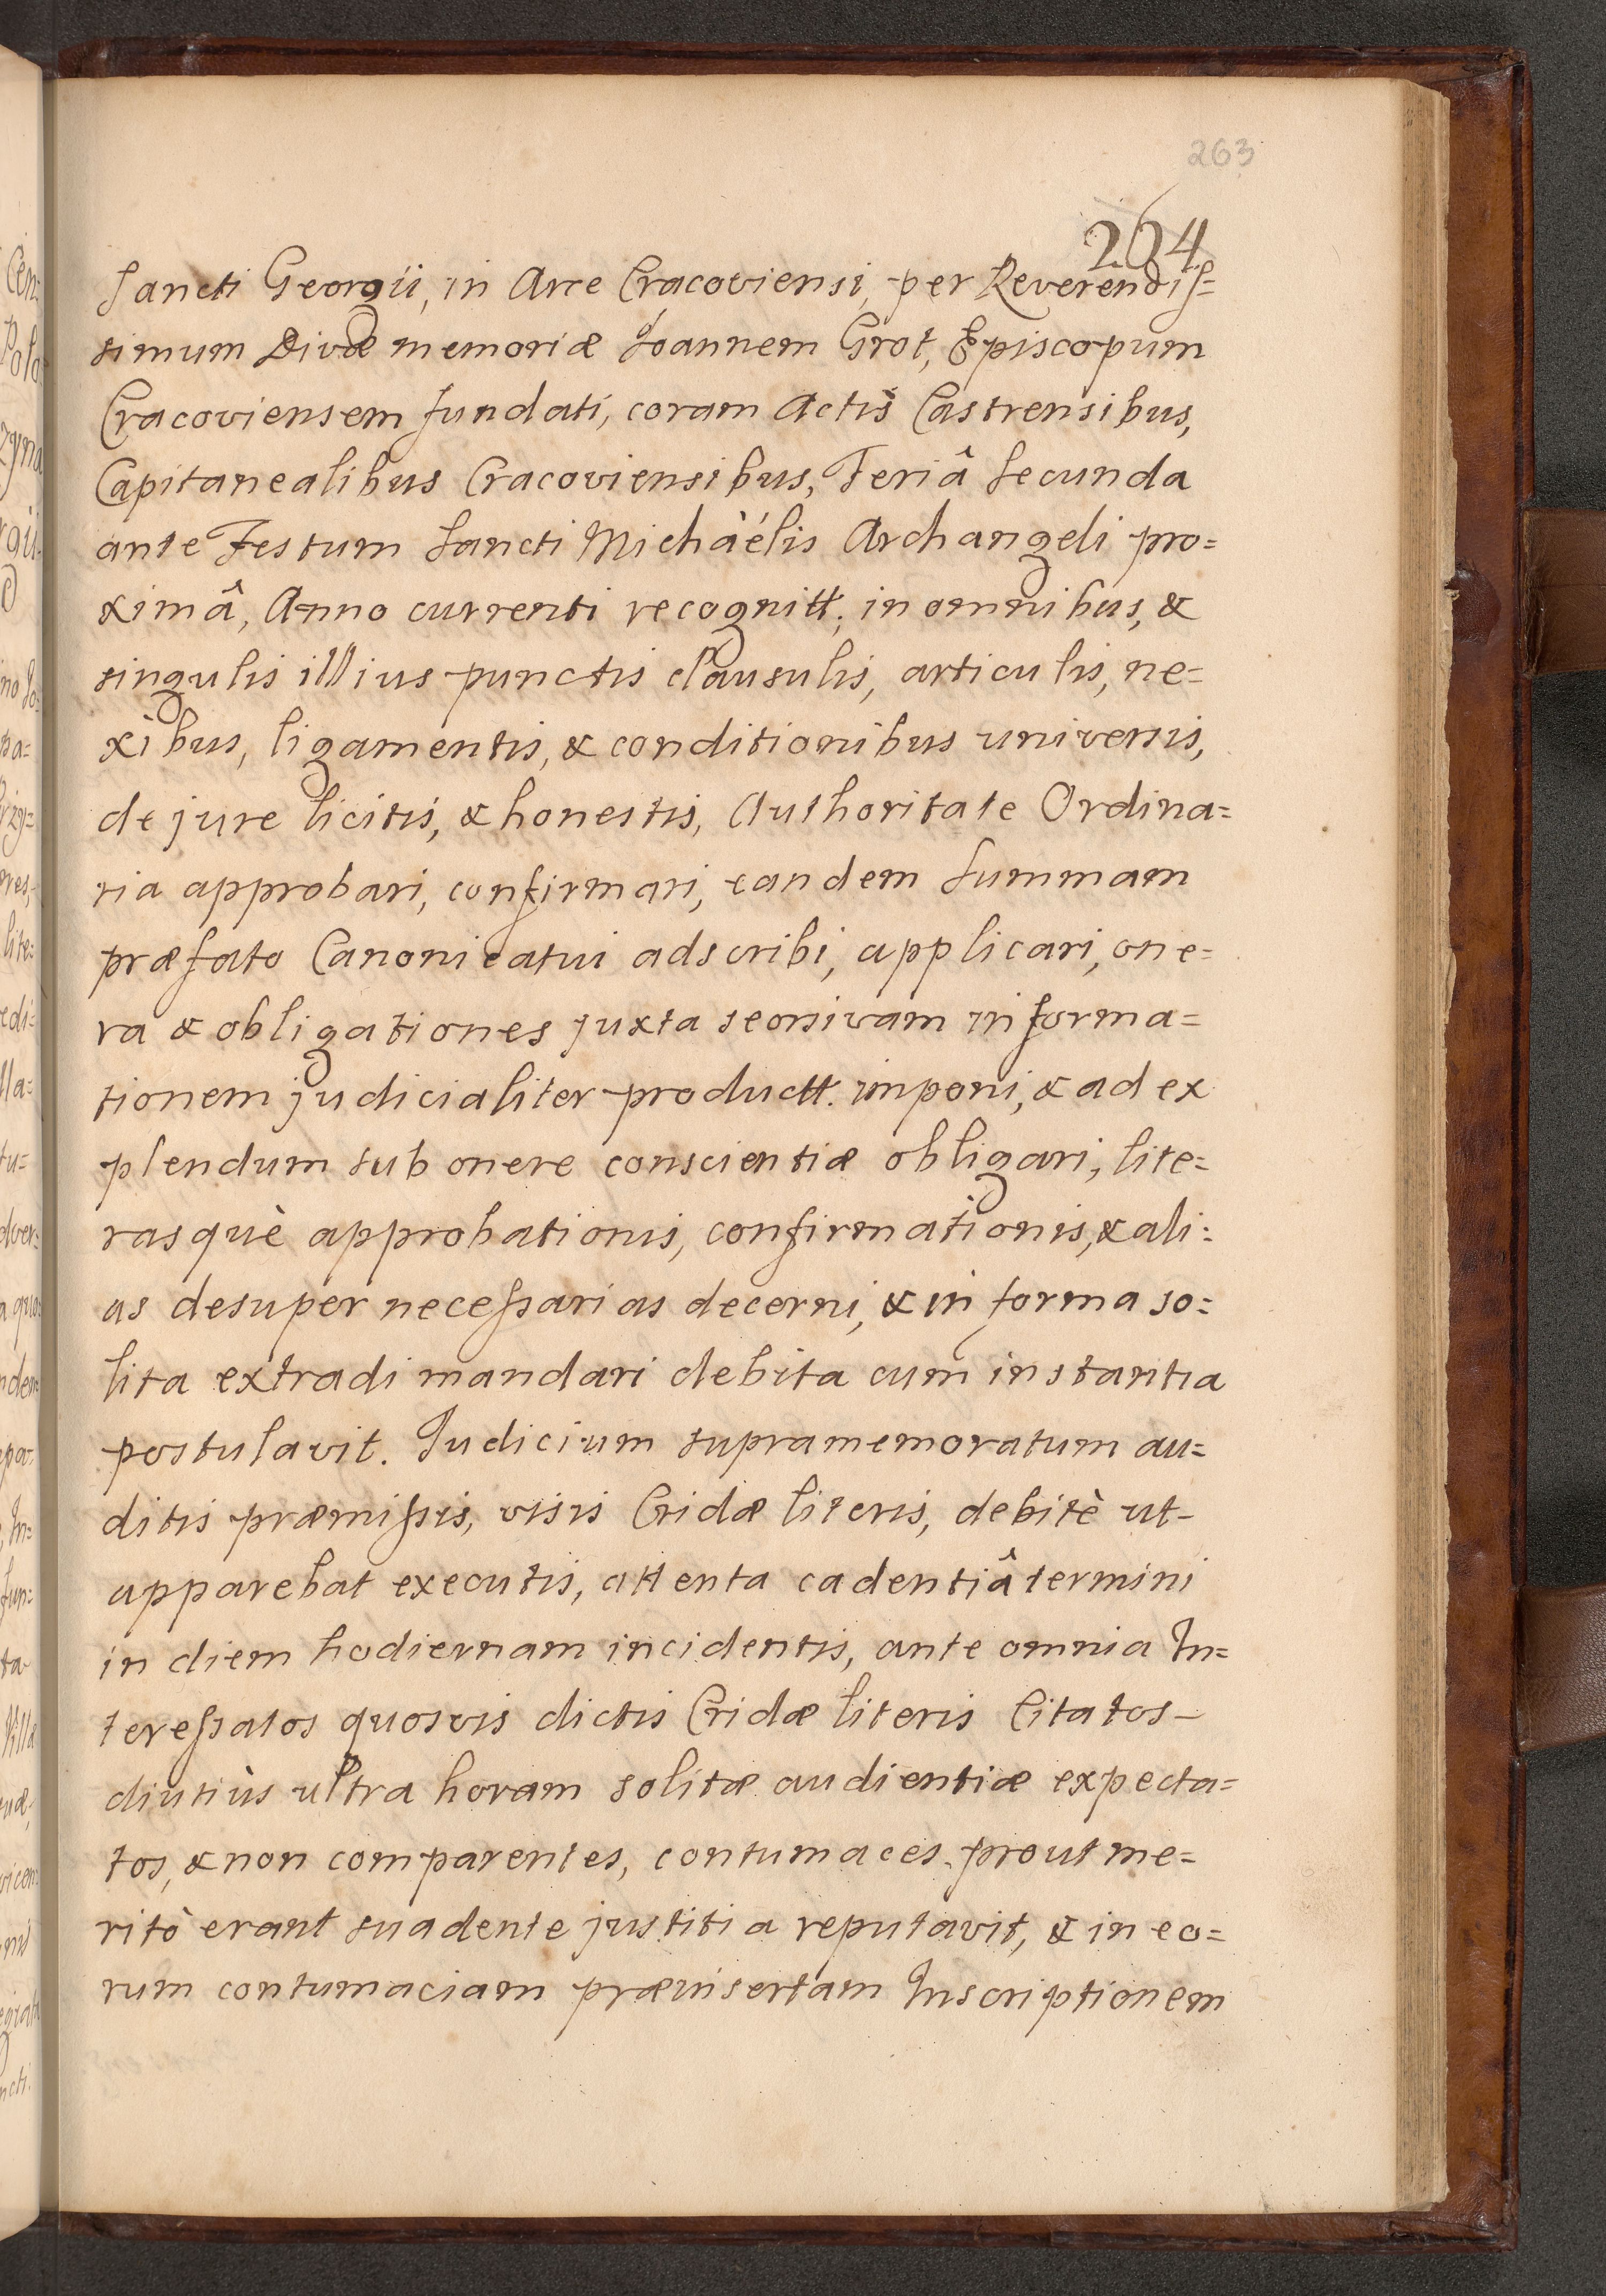 263
264
Sancti Georgii, in Arce Cracoviensi, per Reverendis=
simum Divæ memoriæ Joannem Grot, Episcopum
Cracoviensem fundati, coram Actis Castrensibus,
Capitanealibus Cracoviensibus, Feriâ Secunda
ante Festum Sancti Michàélis Archangeli pro=
ximâ, Anno currenti recognitt; in omnibus, &
singulis illius punctis clausulis, articulis, ne=
xibus, ligamentis, & conditionibus universis,
de jure licitis, & honestis, Authoritate Ordina=
ria approbari, confirmari, eandem Summam
præfato Canonicatui adscribi, applicari, one=
ra & obligationes juxta seorsivam informa=
tionem judicialiter productt. imponi, & ad ex
plendum sub onere conscientiæ obligari, lite=
rasquè approbationis, confirmationis, & ali=
as desuper necessarias decerni, & in forma so=
lita extradi mandari debita cum instantia
postulavit. Judicium supramemoratum au=
ditis præmissis, visis Cridæ literis, debitè ut
apparebat executis, attenta cadentiâ termini
in diem hodiernam incidentis, ante omnia In=
teressatos quosvis dictis Cridæ literis Citatos
diutiùs ultra horam solitæ audientiæ expecta=
tos, & non comparentes, contumaces prout me=
ritò erant suadente justitia reputavit, & in eo=
rum contumaciam præinsertam Inscriptionem